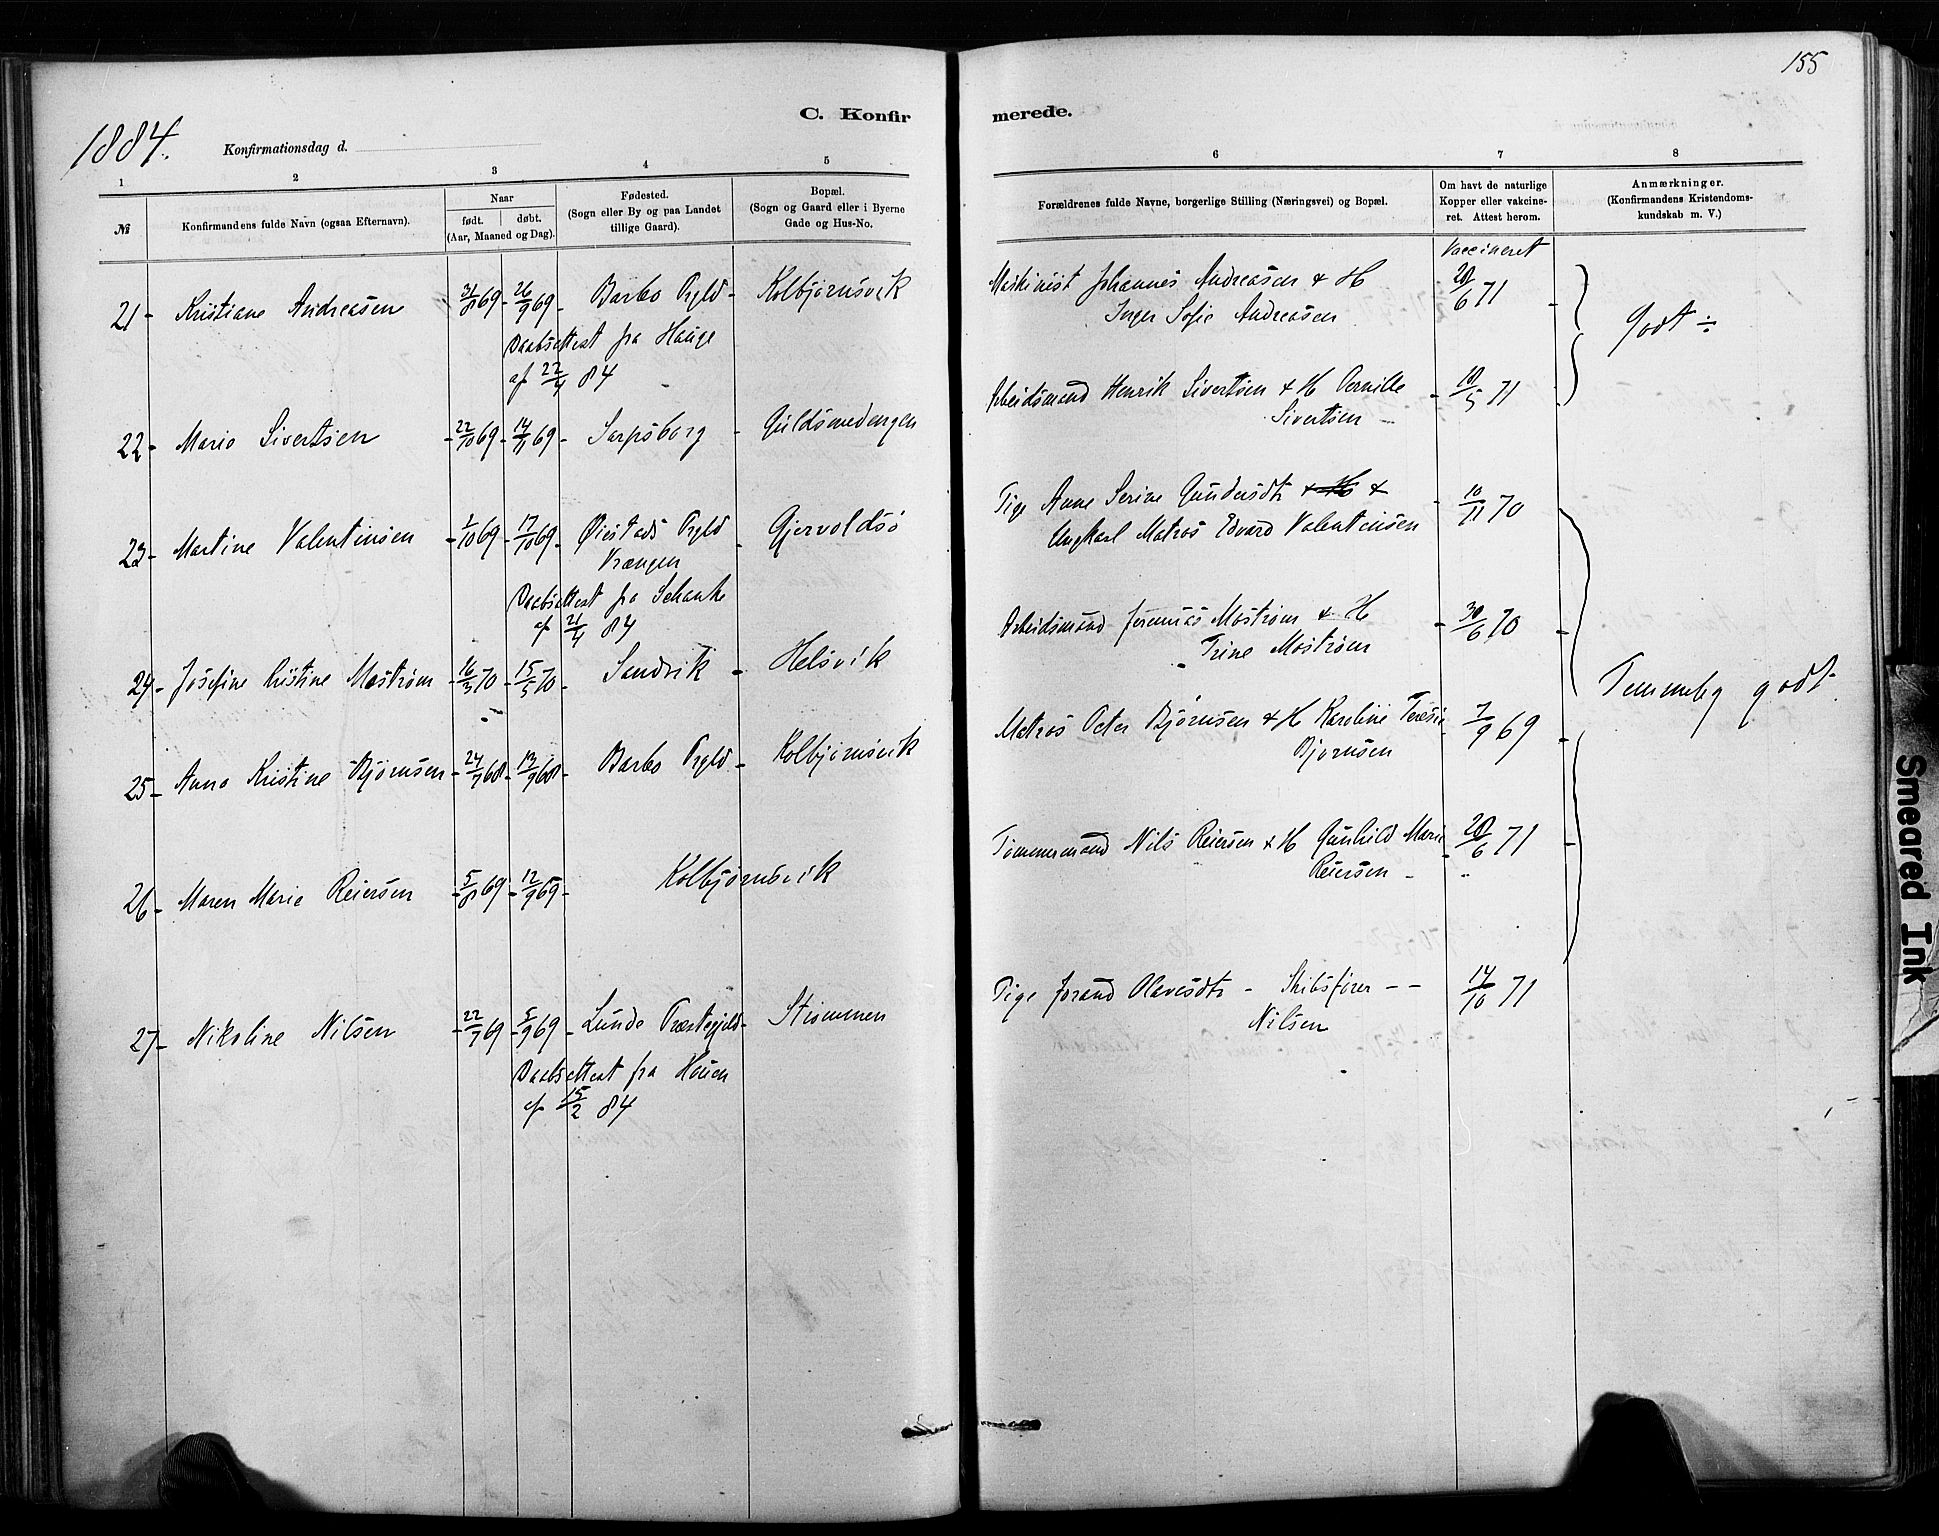 155
C. Konfirmerede.
1884.
Konfirmationsdag d.
1 2 3 4 5 6 7 8
№
Konfirmandens fulde Navn (ogsaa Efternavn).
Naar
født. døbt.
(Aar, Maaned og Dag).
Fødested.
(Sogn eller By og paa Landet
tillige Gaard).
Bopæl.
(Sogn og Gaard eller i Byerne
Gade og Hus-No.
Forældrenes fulde Navne, borgerlige Stilling (Næringsvei) og Bopæl.
Om havt de naturlige
Kopper eller vakcine-
ret. Attest herom.
Anmærkninger.
(Konfirmandens Kristendoms-
kundskab m. V.)
Vaccineret
21 - Kristiane Andreasen 31/8 69 - 26/9 69 - Barbo Prgld - Kolbjørnsvik Maskinist Johannes Andreasen & H 28/6 71 -
Inger Sofie Andreasen
Godt ÷
Daabsattest fra Hauge
af 22/4 84
22 - Marie Sivertsen - 22/10 69 - 14/11 69 - Sarpsborg - Guldsmedengen Arbeidsmand Henrik Sivertsen & H Pernille - 18/5 71
Sivertsen -
23 - Martine Valentinsen - 1/10 69 - 17/10 69 - Øiestads Prgld - Gjervoldsø Tige Anne Serine Gundersdtr & H & - 10/11 70
Vrængen Ungkarl Matros Edvard Valentinsen
Daabsattest fra Schanke
af 21/4 84
24 - Josefine Kristine Mostrøm - 16/3 70 - 15/5 70 - Sandvik - Helsvik Arbeidsmand Jeremias Mostrøm & H - 30/6 70 -
Trine Mostrøm
Temmelig godt
25 - Anna Kristine Bjørnsen - 24/7 68 - 13/9 68 - Barbo Prgld - Kolbjørnsvik Matros Peter Bjørnsen & H Karoline Teresie 7/9 69 -
Bjørnsen
26 - Maren Marie Reiersen - 5/8 69 - 12/9 69 - Kolbjørnsvik Tømmermand Nils Reiersen & H Gunhild Marie - 28/6 71 -
Reiersen -
27 - Nikoline Nilsen - 22/7 69 - 5/9 69 - Lunde Præstegjeld - Strømmen Pige Jorand Olavesdtr - Skibsfører - - 14/10 71
Nilsen
Daabsattest fra Hauen
af 15/2 84
Smeared Ink